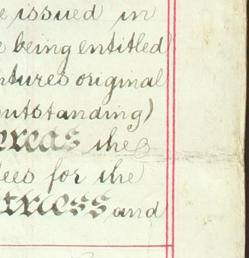 e issued in
e being entitled)
ntures original
outstanding)
ereas the
ees for the
tness and